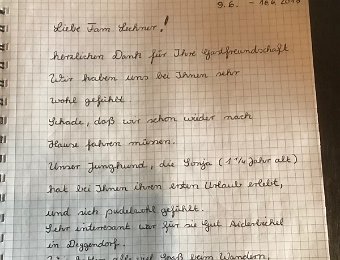 9.6. - 16.6.2018
Liebe Fam. Lechner!
herzlichen Dank für Ihre Gastfreundschaft
Wir haben uns bei Ihnen sehr
wohl gefühlt.
Schade, daß wir schon wieder nach
Hause fahren müssen.
Unser Junghund, die Sonja (1 1/4 Jahr alt)
hat bei Ihnen ihren ersten Urlaub erlebt,
und sich pudelwohl gefühlt.
Sehr interessant war für sie Gut Aiderbichel
in Deggendorf.
alle viel Spaß beim Wandern,